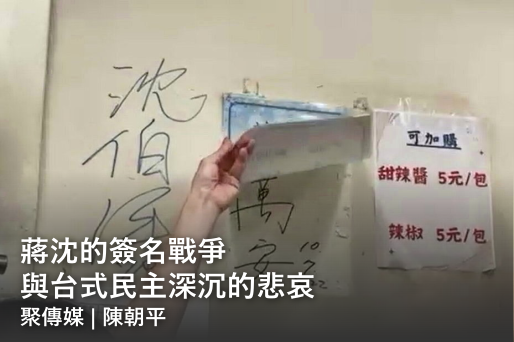 沈
伯
洋
萬
安
可加購
甜辣醬 5元/包
辣椒 5元/包
蔣沈的簽名戰爭
與台式民主深沉的悲哀
聚傳媒 | 陳朝平